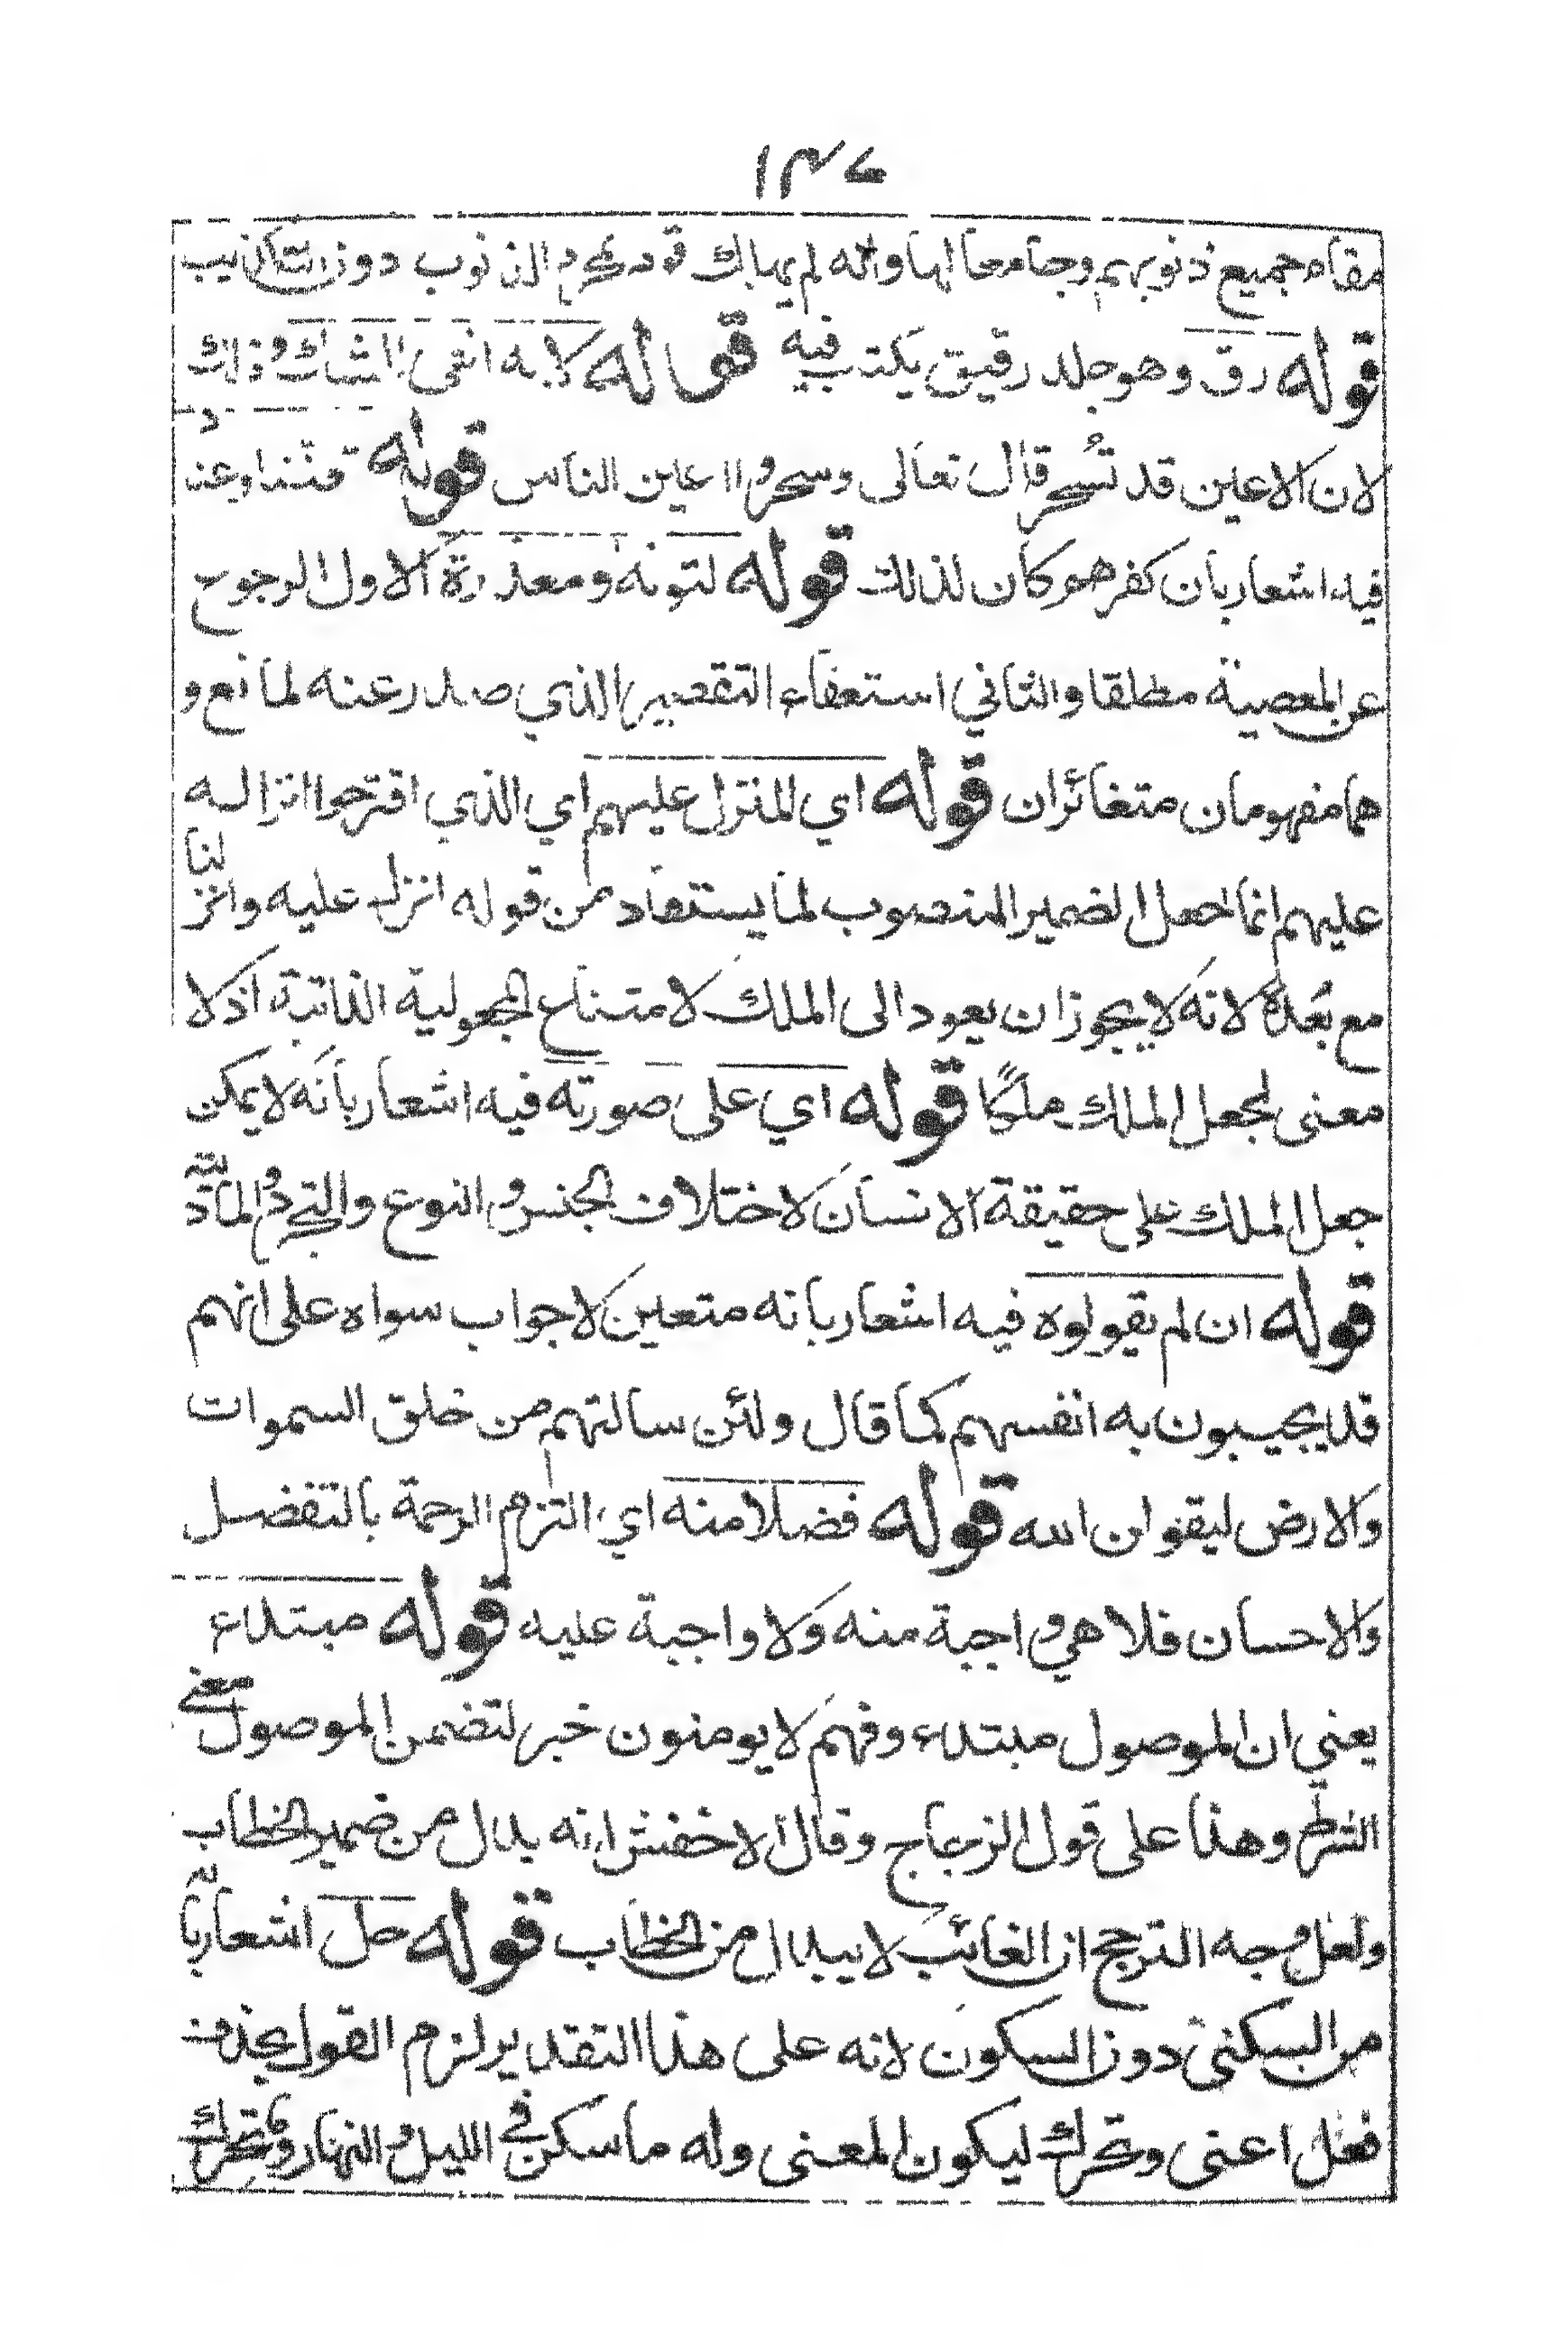 ١٣٧
مقام جميع ذنوبهم وجامعا لها وانه لم يهلك قوم بمجرد الذنوب دون التكذيب
قوله رق وهو جلد رقيق يكتب فيه قوله لانه انفى للشك وذلك
لان الاعين قد تسحر قال تعالى وسحروا اعين الناس قوله تعنتا وعنادا
فيه اشعار بان كفرهم كان لذلك قوله لتوبة ومعذرة الاول الرجوع
عن المعصية مطلقا والثاني استعفاء التقصير الذي صدر عنه لمانع و
هما مفهومان متغائران قوله اي المنزل عليهم اي الذي اقترحوا انزاله
عليهم انما جعل الضمير المنصوب لما يستفاد من قوله انزل عليه وانزلنا
مع بعده لانه لا يجوز ان يعود الى الملك لامتناع المجعولية الذاتية اذ لا
معنى لجعل الملك ملكا قوله اي على صورته فيه اشعار بانه لا يمكن
جعل الملك على حقيقة الانسان لاختلاف الجنس والنوع والتجرد والمادية
قوله ان لم يقولوه فيه اشعار بانه متعين لا جواب سواه على انهم
قد يجيبون به انفسهم كما قال ولئن سالتهم من خلق السموات
والارض ليقولن الله قوله فضلا منه اي التزم الرحمة بالتفضل
والاحسان فلا هي واجبة منه ولا واجبة عليه قوله مبتداء
يعني ان الموصول مبتداء وفهم لا يومنون خبر لتضمن الموصول معنى
الشرط وهذا على قول الزجاج وقال الاخفش انه بدل من ضمير الخطاب
ولعل وجه الترجيح ان الغائب لا يبدل من الخطاب قوله حل اشعار بانه
من السكنى دون السكون لانه على هذا التقدير لزم القول بحذف
فعل اعنى وتحرك ليكون المعنى وله ما سكن في الليل والنهار وما تحرك